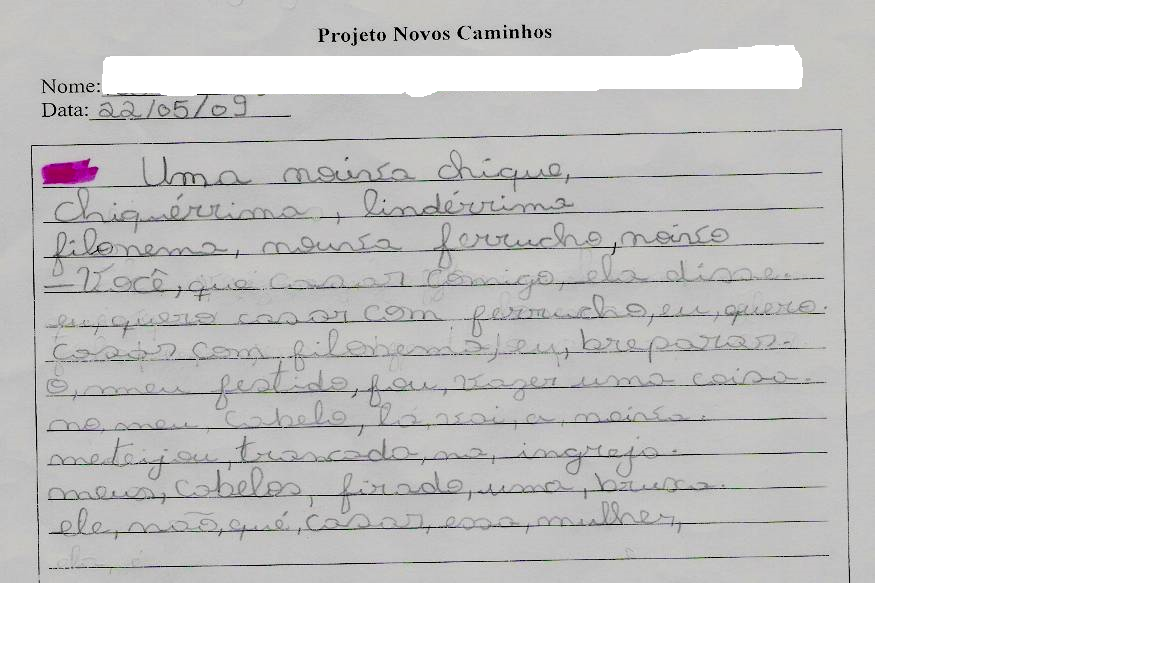 Projeto Novos Caminhos
Nome:
Data: 22/05/09
Uma noiva chique,
chiquérrima, lindérrima
filonema, nouva ferrucho, noivo
– Você, que casar comigo, ela disse.
eu, quero casar com ferrucho, eu, quero.
casar com, filonema, eu, breparar.
O, meu festido, fou, vazer uma coisa.
no, meu, cabelo, lá, vai, a, noiva.
meteijou, trancada, na, ingreja.
meus, cabelos, firado, uma, bruxa.
ele, não, qué, casar, essa, mulher,